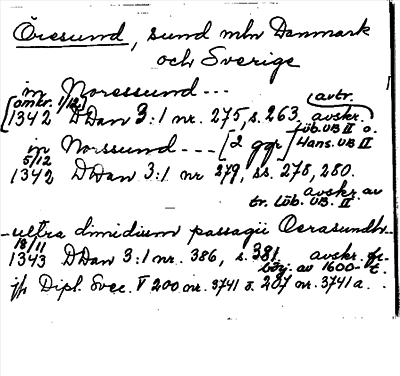 Öresund, sund mln Danmark
och Sverige
in Noressund ---
[omkr. 1/12] 1342 DDan 3:1 nr. 275, s. 263. (avtr. avskr. Lüb. UB II o. Hans. UB II
in Norssund --- [2 ggr]
5/12 1342 DDan 3:1 nr 279, ss. 278, 280.
avskr av
tr. Lüb. UB. II.
- ultra dimidium passagii Oerasundh -
18/11 1343 DDan 3:1 nr. 386, s. 381. avskr. fr.
börj. av 1600-t.
jfr Dipl. Svec. V 200 nr. 3741 o. 207 nr. 3741 a.